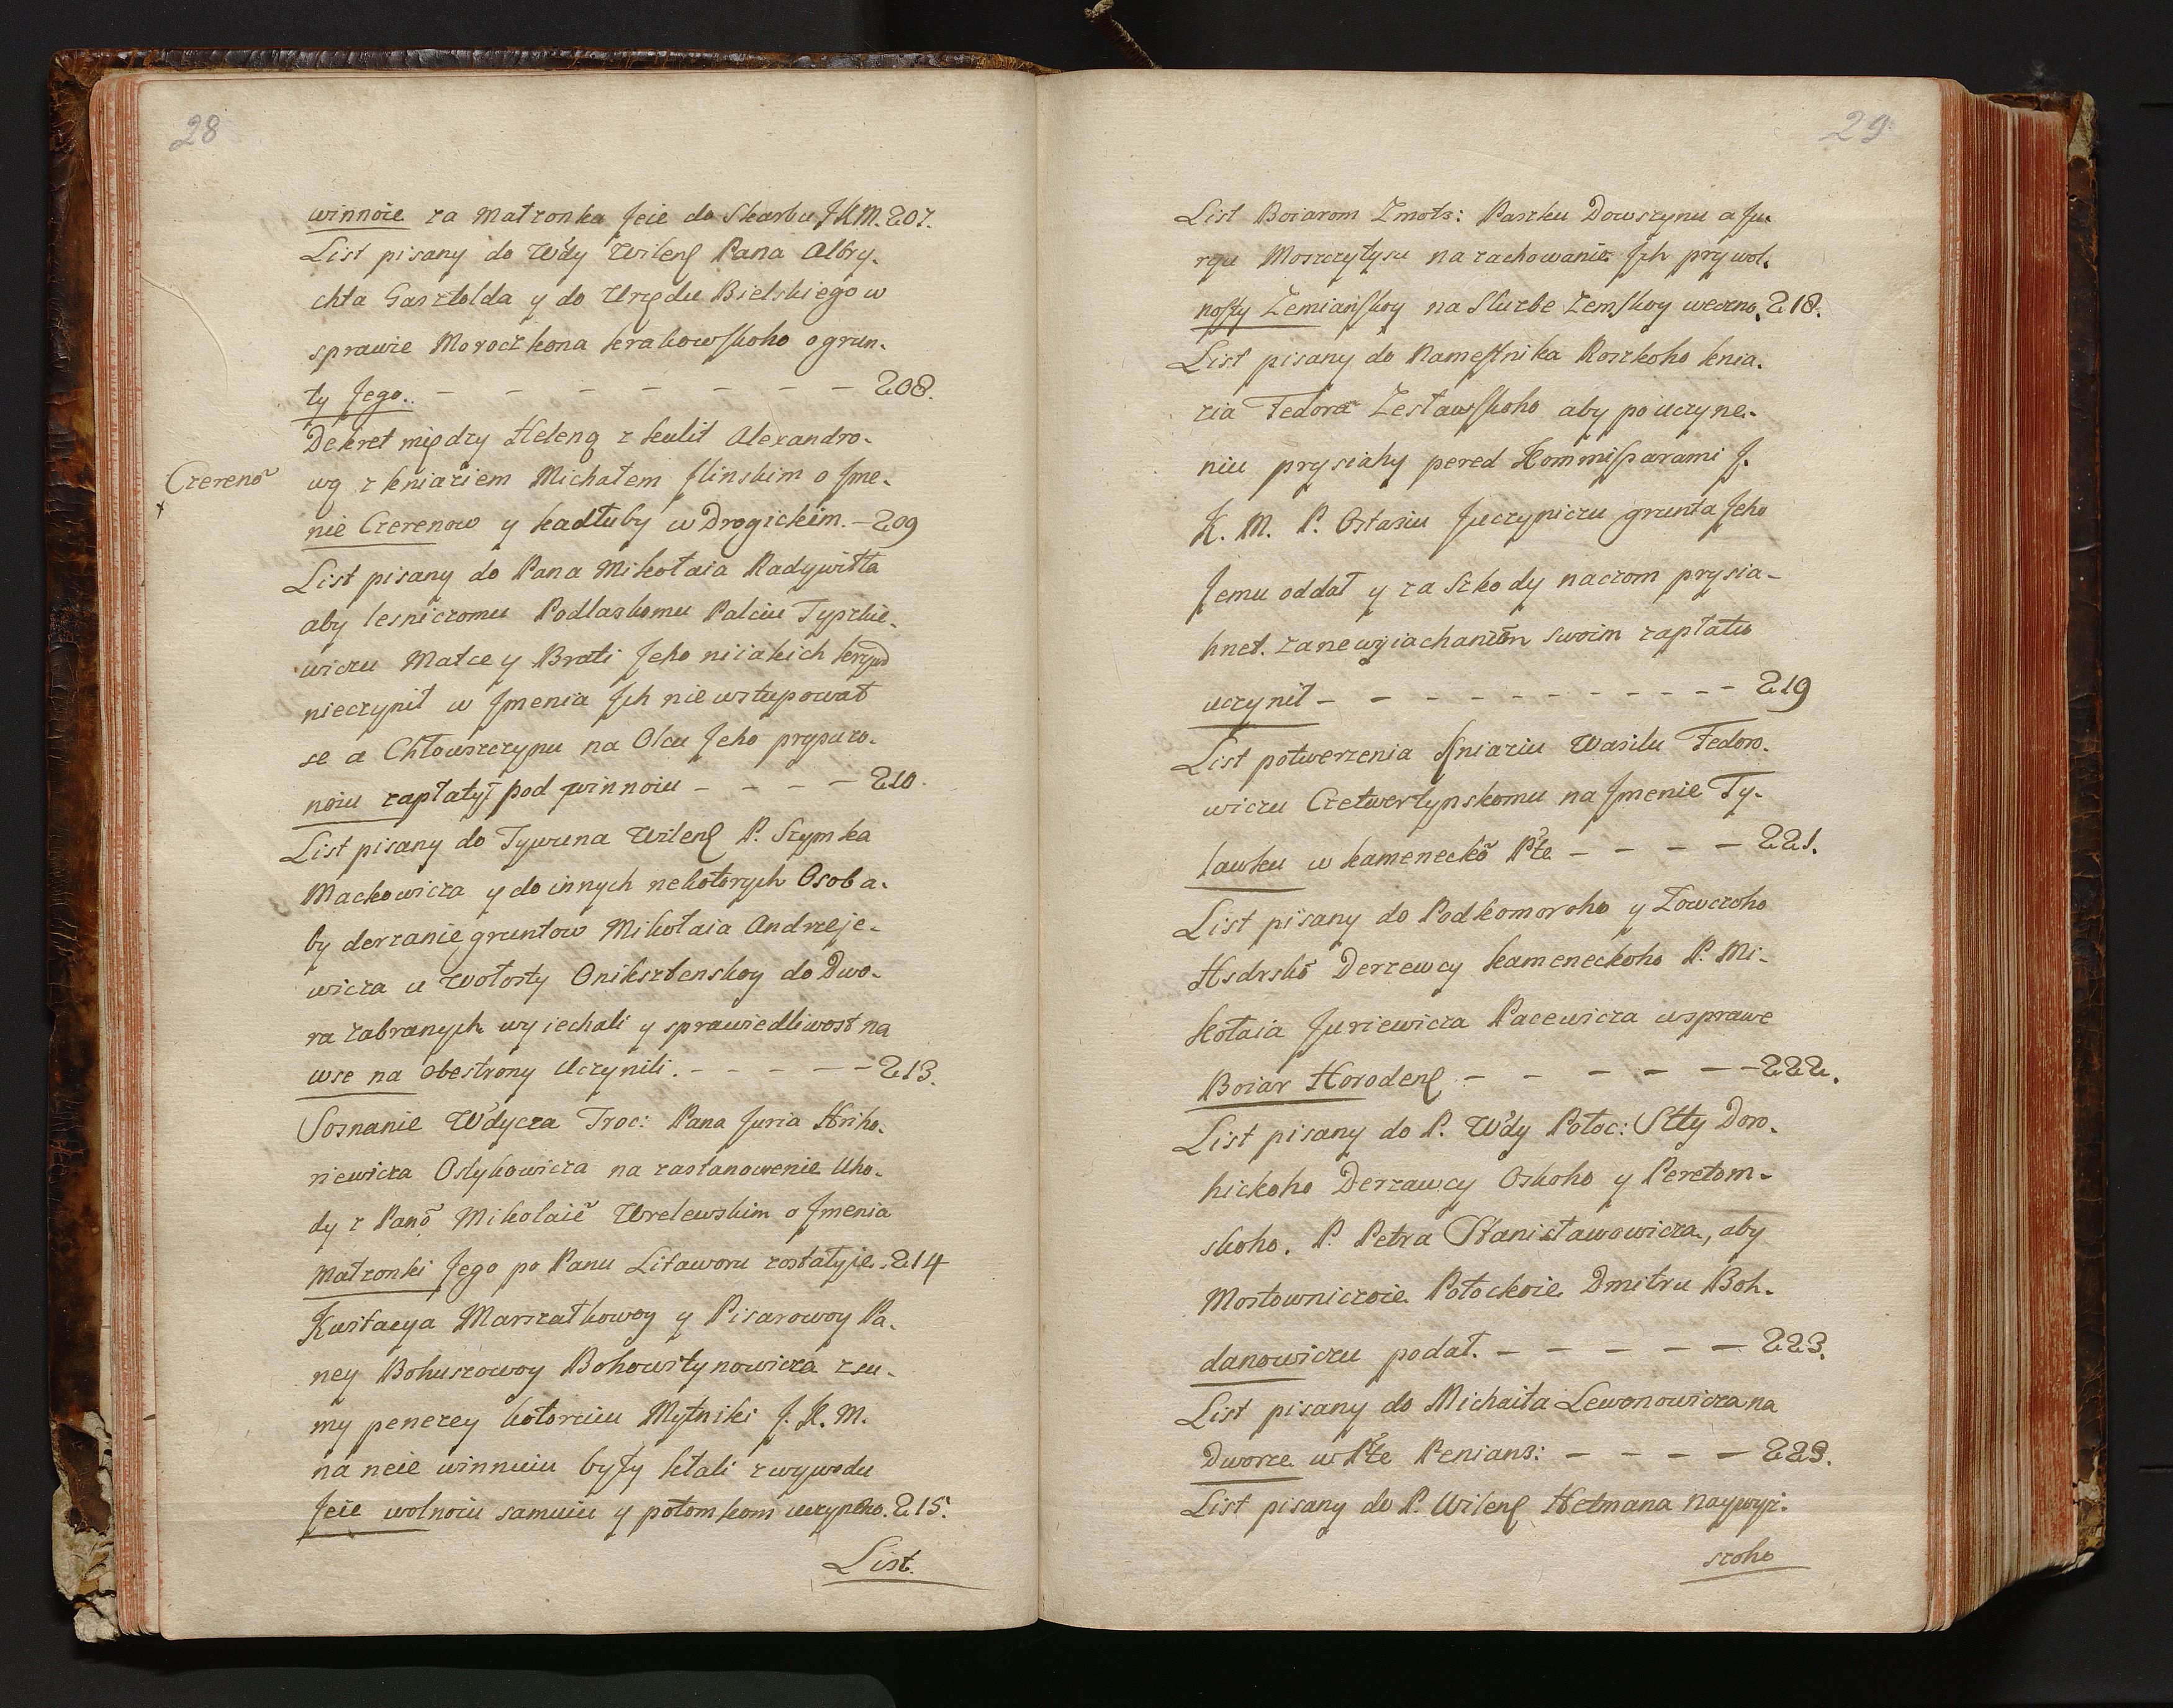 28
winnoie za Matzonka Jeie do Skarbu JKM. 207.
List pisany do Wdy Wilenſ Pana Olbry-
chta Gasztolda y do Urzędu Bielskiego w
sprawie Moroczkona krakowskoho o grun-
ty Jego.. - - - - - - - 208.
Dekret między Heleną z kulit Alexandro-
wą z kniaziem Michałem Glinskim o Jme-
Czerenõ
nie Czerenow y kadłuby w Drogickim. - 209
List pisany do Pana Mikołaia Radywiłła
aby lesniczomu Podlaskomu Palciu Typzkie-
wiczu Matce y Brati Jeho niiakich krywd
nieczynił w Jmenia Jch nie wstupował
se a Chłowszczynu na Olcu Jeho prypuzo-
noiu zapłatył pod winnoiu - - - - 210.
List pisany do Tywuna Wilenſ P. Szymka
Mackowicza y do innych nekotorych Osob a-
by derzanie gruntow Mikołaia Andrzeje-
wicza u Wołosty Onikszbenskoy do Dwo-
ra zabranych wyiechali y sprawiedliwost na
wse na obestrony Uczynili. - - - - - 213.
Soznanie Wdycza Troc: Pana Juria Hriho-
riewicza Ostykowicza na zastanowenie Uho-
dy z Panõ Mikolaiẽ Wrelewskim o Jmenia
Matzonki Jego po Panu Litaworu zostałyje. 214
Kwitacya Marszałkowoy y Pisarowoy Pa-
ney Bohuszowoy Bohowitynowicza z su-
my penezey kotoruiu Mytniki J. K. M.
na neie winnuiu były ktali z wywodu
Jeie wolnoiu samuiu y potomkom uczyneno. 215.
List.
29
List Boiarom Zmots: Paszku Dowszynu a Ju-
rgu Moszczytysu na zachowanie Jch prywol-
nosty Zemianskoy na Sluzbe Zemskoy weczno. 218.
List pisany do Namestnika Roszkoho knia-
zia Fedora Zesławskoho aby po uczyne-
niu prysiahy pered Kommisparami J.
K. M. P. Ostasiu Juczyniczu grunta Jeho
Jemu oddał y za Szkody naczom prysia-
hnet. zanewyiachaniem swoim zapłatu
uczynił - - - - - - - - - - - 219
List potwerzenia Kniaziu Wasilu Fedoro-
wiczu Czetwertynskomu na Jmenie Ty-
lawku w kameneckõ Pťe - - - - 221.
List pisany do Podkomoroho y Łowczoho
Hsdrskõ Derzewcy kameneckoho P. Mi-
kołaia Juriewicza Pacewicza wsprawe
Boiar Horodenſ - - - - - - 222.
List pisany do P. Wdy Połoc: Stty Doro-
hickoho Derzawcy Oskoho y Perełom-
skoho. P. Petra Stanisławowicza, aby
Mostowniczoie Połockoie Dmitru Boh-
danowiczu podał. - - - - - 223.
List pisany do Michaiła Lewonowicza na
Dworze w Pťe Penians: - - - - 223.
List pisany do P. Wilenſ Hetmana Naywyż-
szoho